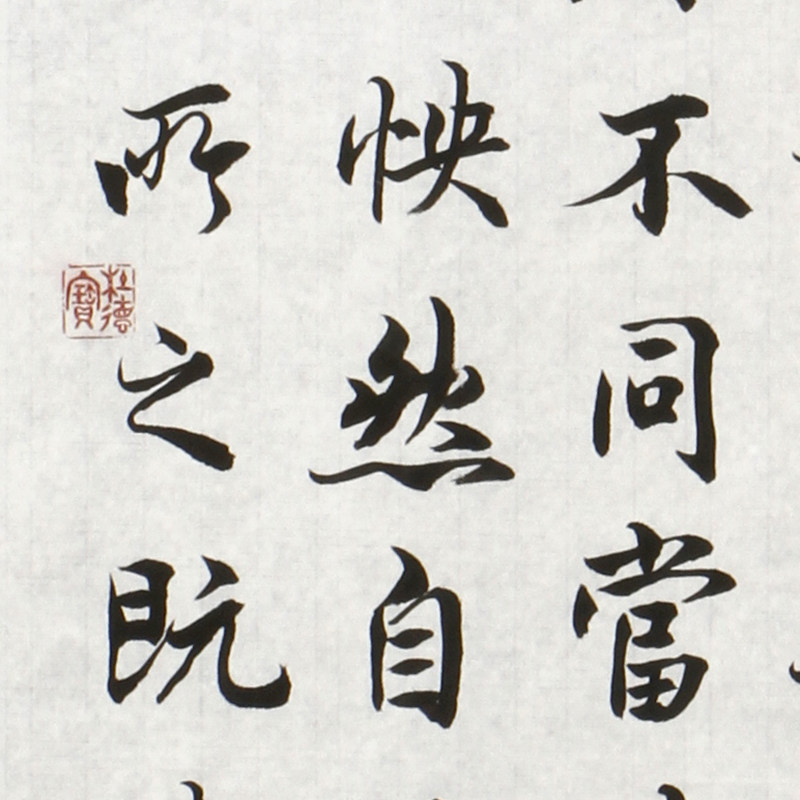 不同當
怏然自
所之既
杜德寶